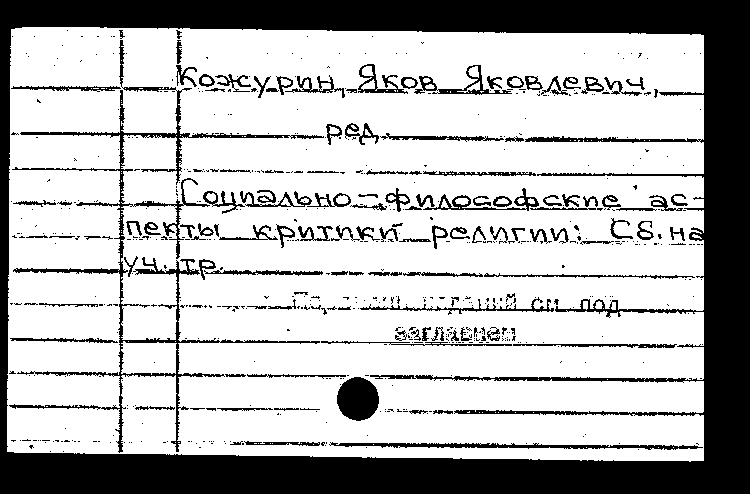 Кожурин, Яков Яковлевич,
ред.
Социально-философские ас-
пекты критики религии: Сб. на
уч. тр.
изданий см под
заглавием